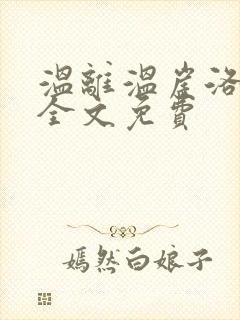 温離温崖洛
全文免費
嫣然白娘子